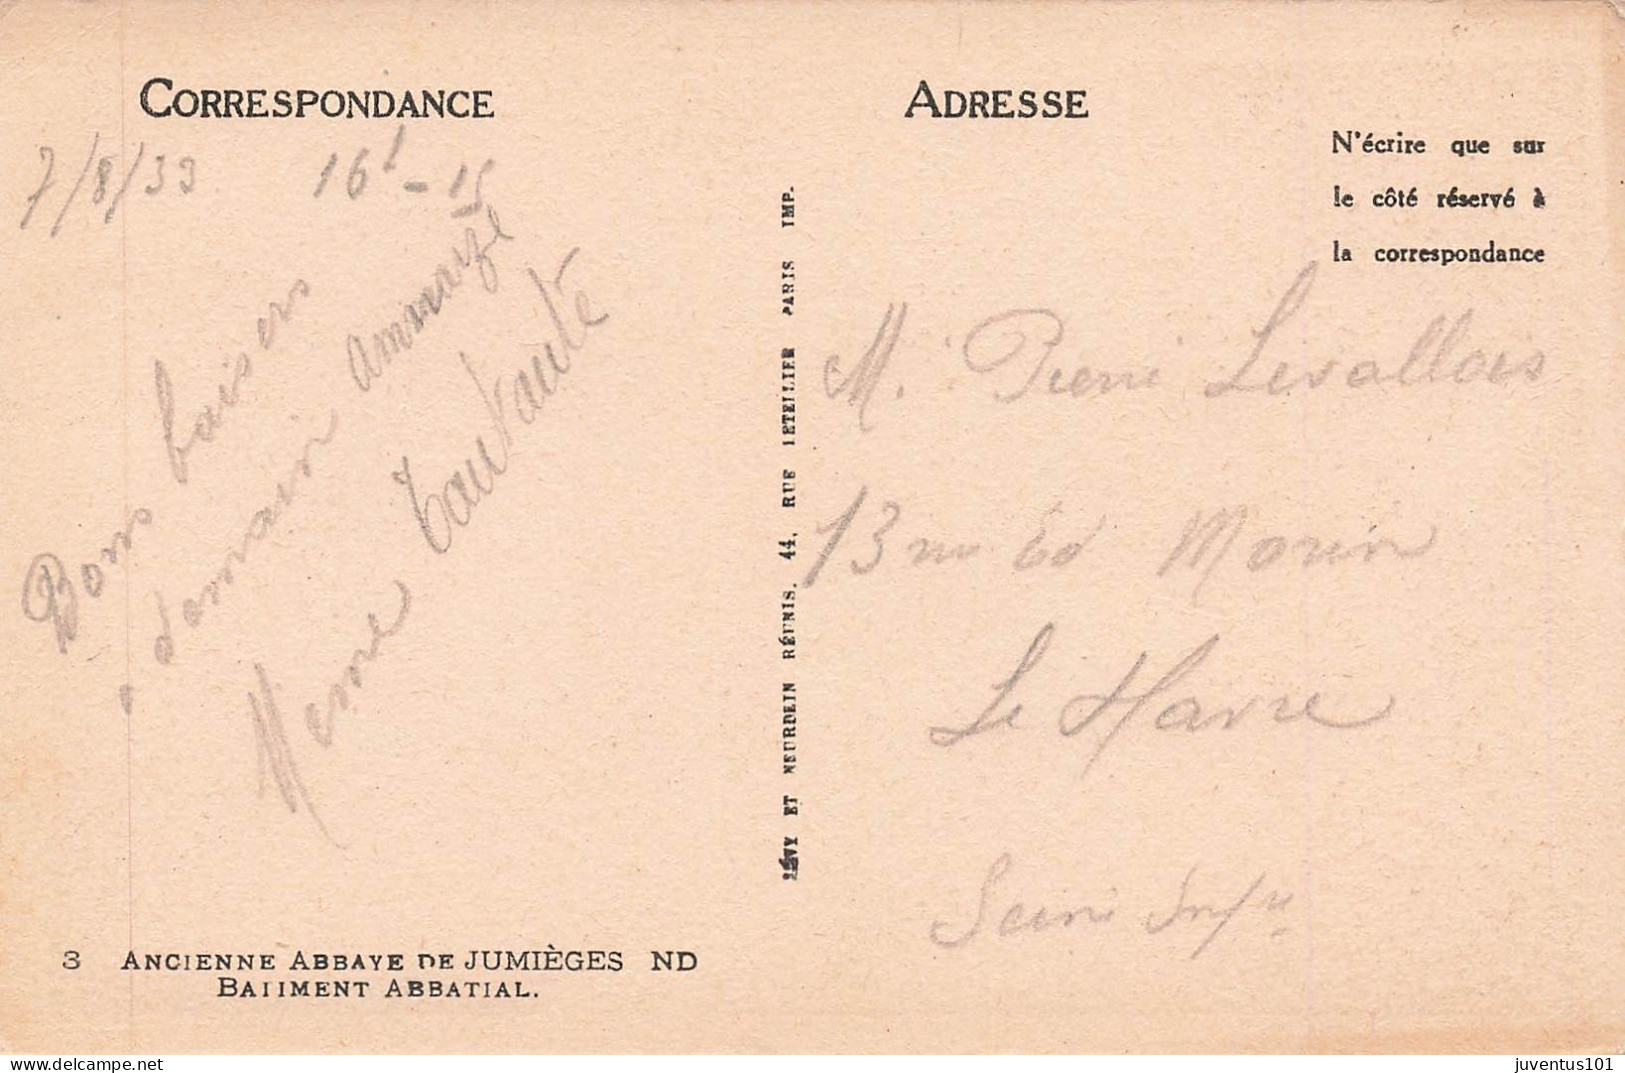 CORRESPONDANCE
7/8/33 16h-15
Bons baisers
a demain
Meme
ADRESSE
N'écrire que sur
le côté réservé à
la correspondance
M. Pierre Levallois
13 rue Ed Morin
Le Havre
Seine Infre
LÉVY ET NEURDEIN RÉUNIS, 44, RUE LETELLIER PARIS IMP.
3 ANCIENNE ABBAYE DE JUMIÈGES ND
BATIMENT ABBATIAL.
juventus101